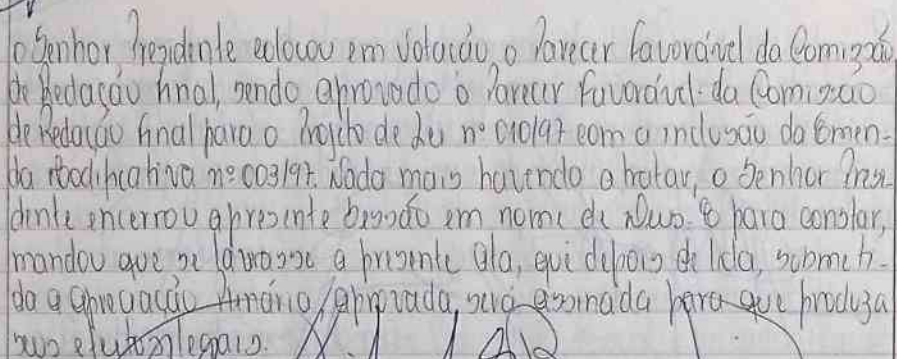 o Senhor Presidente colocou em votação, o Parecer Favorável da Comissão
de Redação final, sendo aprovado o Parecer Favorável da Comissão
de Redação final para o Projeto de Lei nº 010/97 com a inclusão da Emen-
da Modificativa nº 003/97. Nada mais havendo a tratar, o Senhor Presi-
dente encerrou a presente Sessão em nome de Deus. E para constar,
mandou que se lavrasse a presente Ata, que depois de lida, submeti-
da a apreciação Plenária, aprovada, será assinada para que produza
seus efeitos legais.